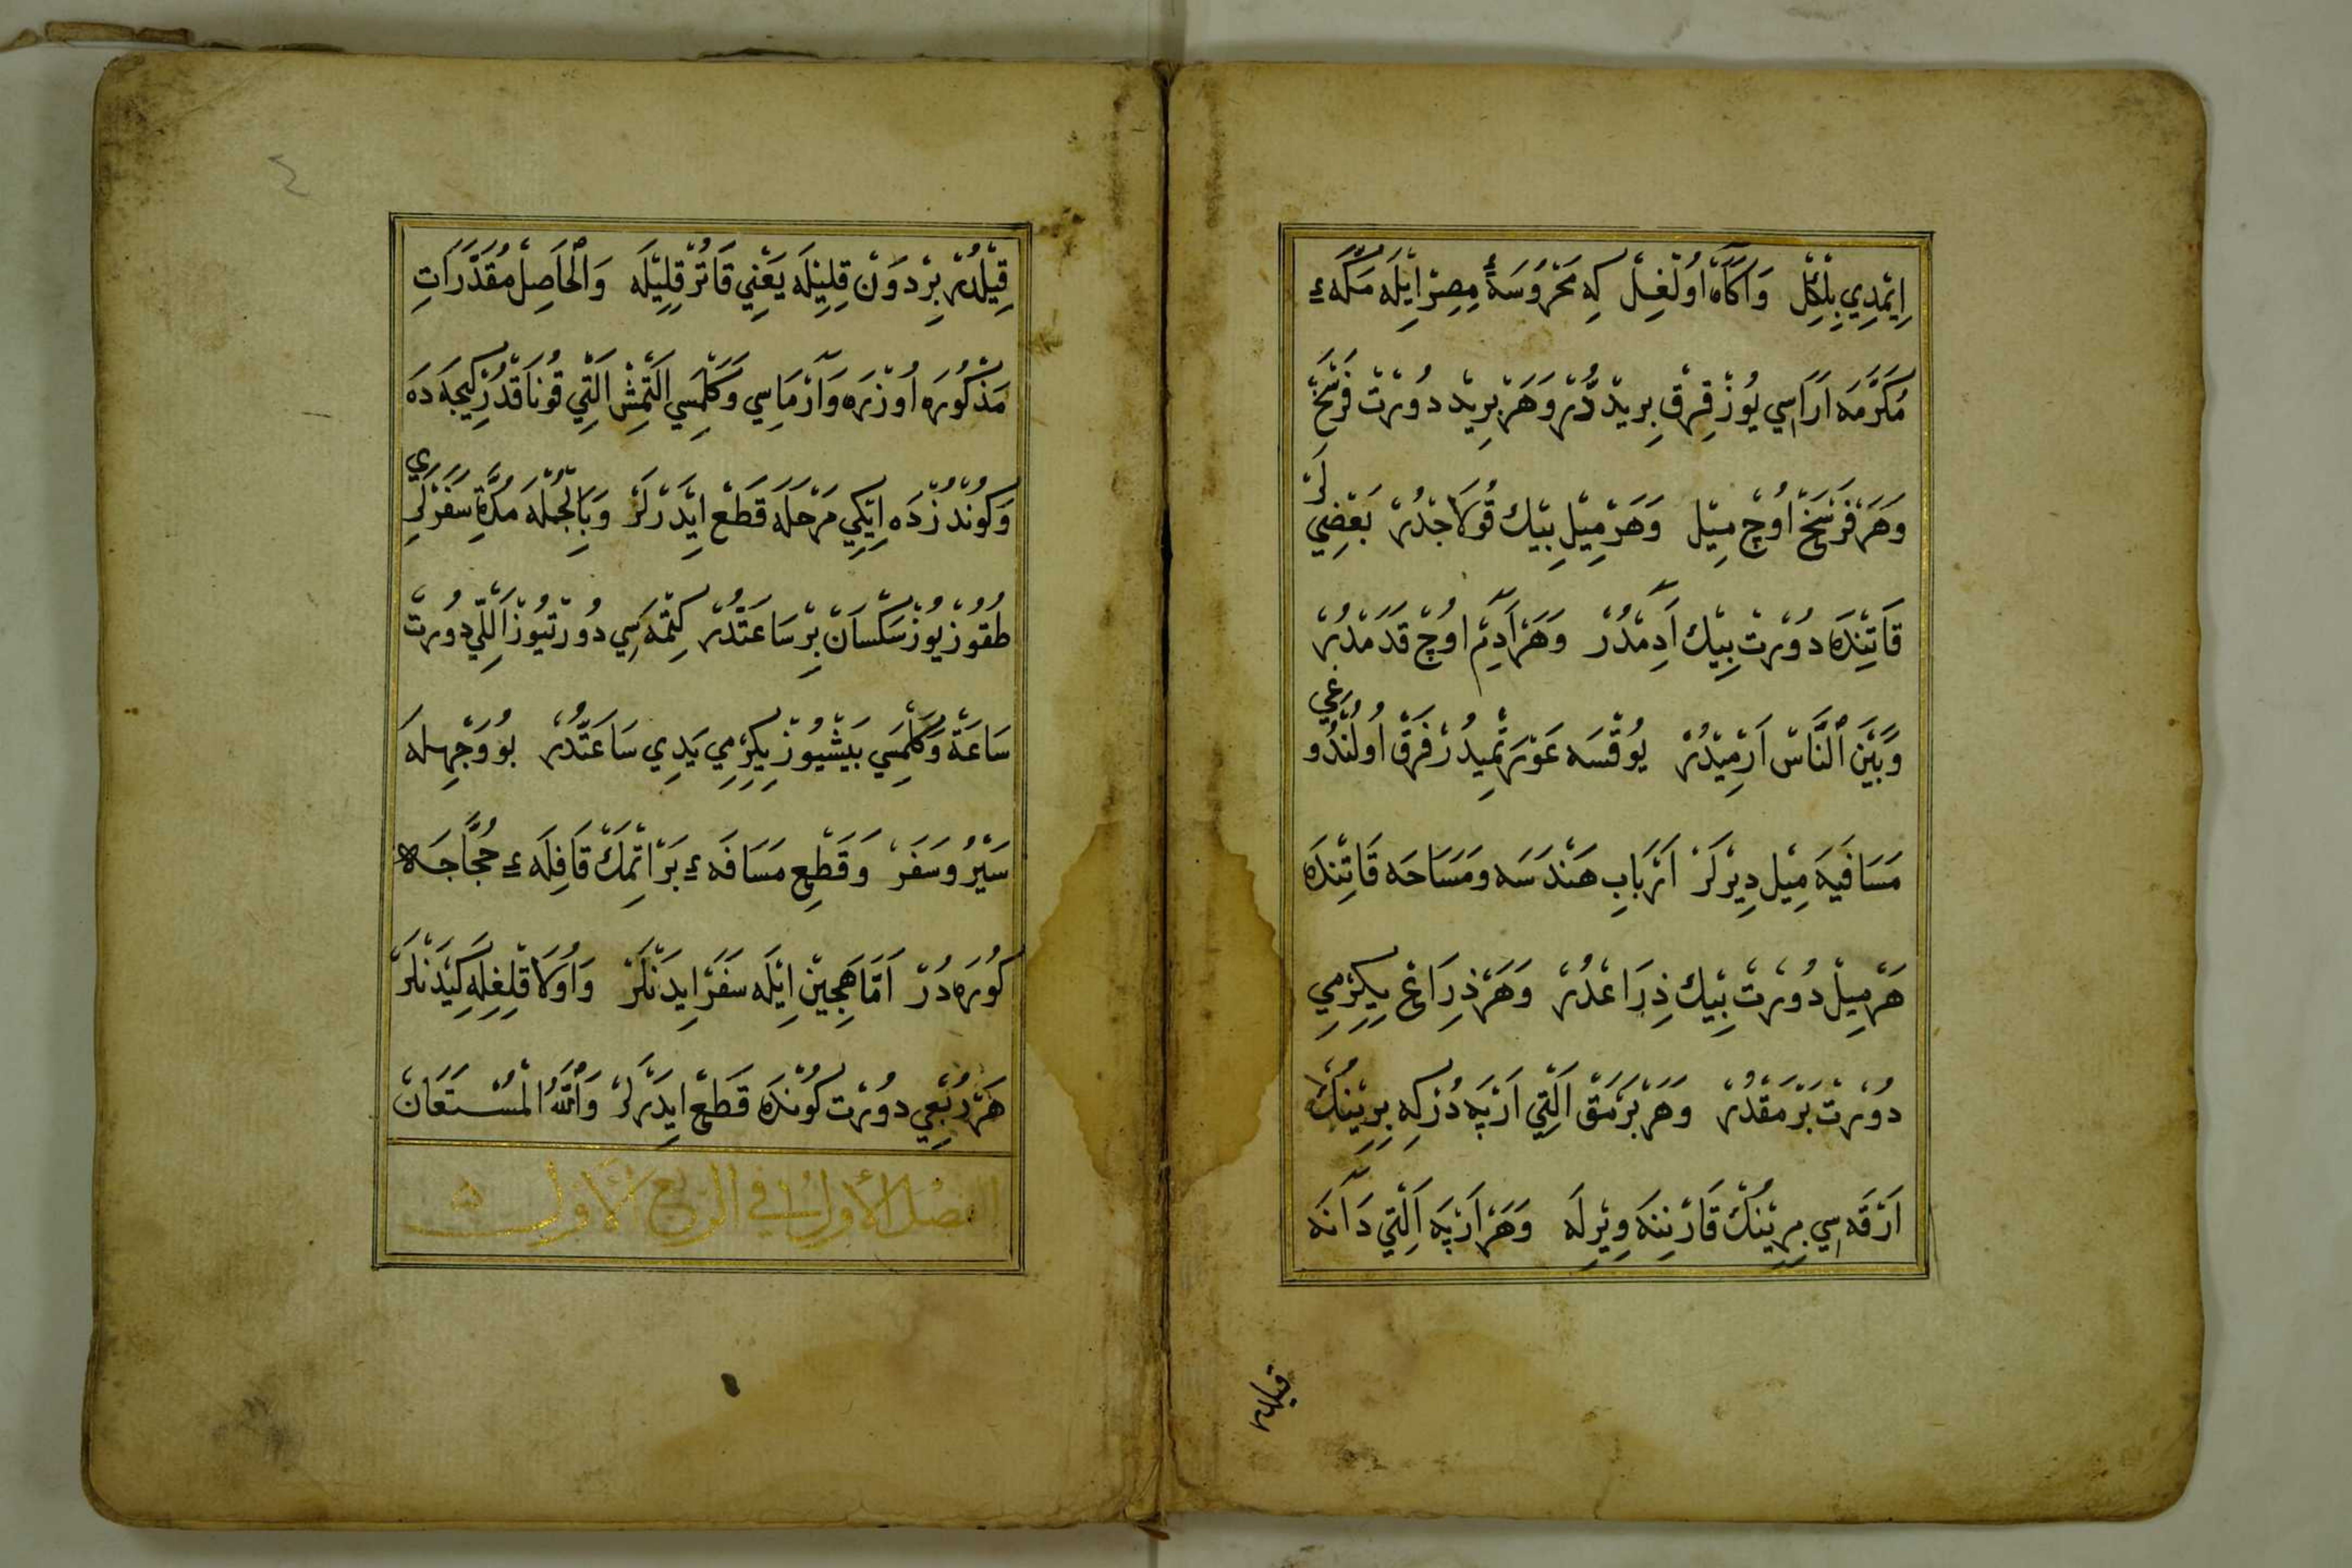 اِيْمْدِي بِلْكِلْ وَآكَاهْ اُولْغِلْ كِه مَحْرُوسَهٔ مِصِرْ اِيْلَه مَكَّهء
مُكَرَّمَه اَرَاسِي يُوزْ قِرْقْ بِريدْ دُرْ وَهَرْ بَرِيدْ دُورْتْ فَرْسَخْ
وَهَرْ فَرْسَخْ اُوچْ مِيْلْ وَهَرْ مِيْلِ بِيْكْ قُولَاجْدُرْ بَعْضِيلَرْ
قَاتِنْدَه دُورْتْ بِيْكْ آدِمْدُرْ وَهَرْ آدِمْ اُوچْ قَدَمْدُرْ
وَبَيْنَ ٱلنَّاسْ اَرْمِيْدُرْ يُوقْسَه عَوْرَتْمِيدُرْ فَرْقْ اُولُنْدُوغِي
مَسَافَيَه مِيْل دِيْرْلَرْ اَرْبَابِ هَنْدَسَه وَمَسَاحَه قَاتِنْدَه
هَرْ مِيلْ دُورْتْ بِيْكْ ذِرَاعْدُرْ وَهَرْ ذِرَاعْ يِكِرْمِي
دُورْتْ بَرْمَقْدُرْ وَهَرْ بَرْمَقْ اَلْتِي اَرْپَه دُرْ كِه بِرِيْنُكْ
اَرْقَه سِي بِرِيْنُكْ قَارْنِنَه وِيْرِلَه وَهَرْ اَرْپَه اَلْتِي دَانَه
قيلدر
قِيْلْدُرْ بِرْذَوْنْ قِلِيْلَه يَعْنِي قَاتُرْ قِلِيْلَه وَالْحَاصِلْ مُقَدَّرَاتِ
مَذْكُورَه اُوزْرَه وَآرْمَاسِي وَكَلْمَسِي اَلْتْمِشْ اَلْتِي قُونَاقْدُرْ كِيجَه دَه
وَكُونْدُزْدَه اِيْكِي مَرْحَلَه قَطَعْ اِيْدَرْلَرْ وَبِالْجُمْلَه مُدَّةِ سَفَرْلَرِي
طُقُوزْ يُوزْ سَكْسَانْ بِرْ سَاعَتْدُرْ كِتْمَه سِي دُورْتْيُوزْ اَللِّي دُورْتْ
سَاعَةْ وَكَلْمَسِي بَيْشْيُوزْ يِكِرْمِي يَدِي سَاعَتْدُرْ بُو وَجْهِلَه
سَيْرُ وسَفَرْ وَقَطْعِ مَسَافَهء بَرْ اِتْمَكْ قَافِلَهء حُجَّاجَه
كُورَه دُرْ اَمَّا هَجِينْ اِيْلَه سَفَرْ اِيدَنْلَرْ وَاُولَاقْلِغِلَه كِيْدَنْلَرْ
هَرْ رُبْعِي دُورْتْ كُونْدَه قَطَعْ اِيدَرْلَرْ وَٱللّٰهُ الْمُسْتَعَانْ
الفصل الأول في الربع الأول